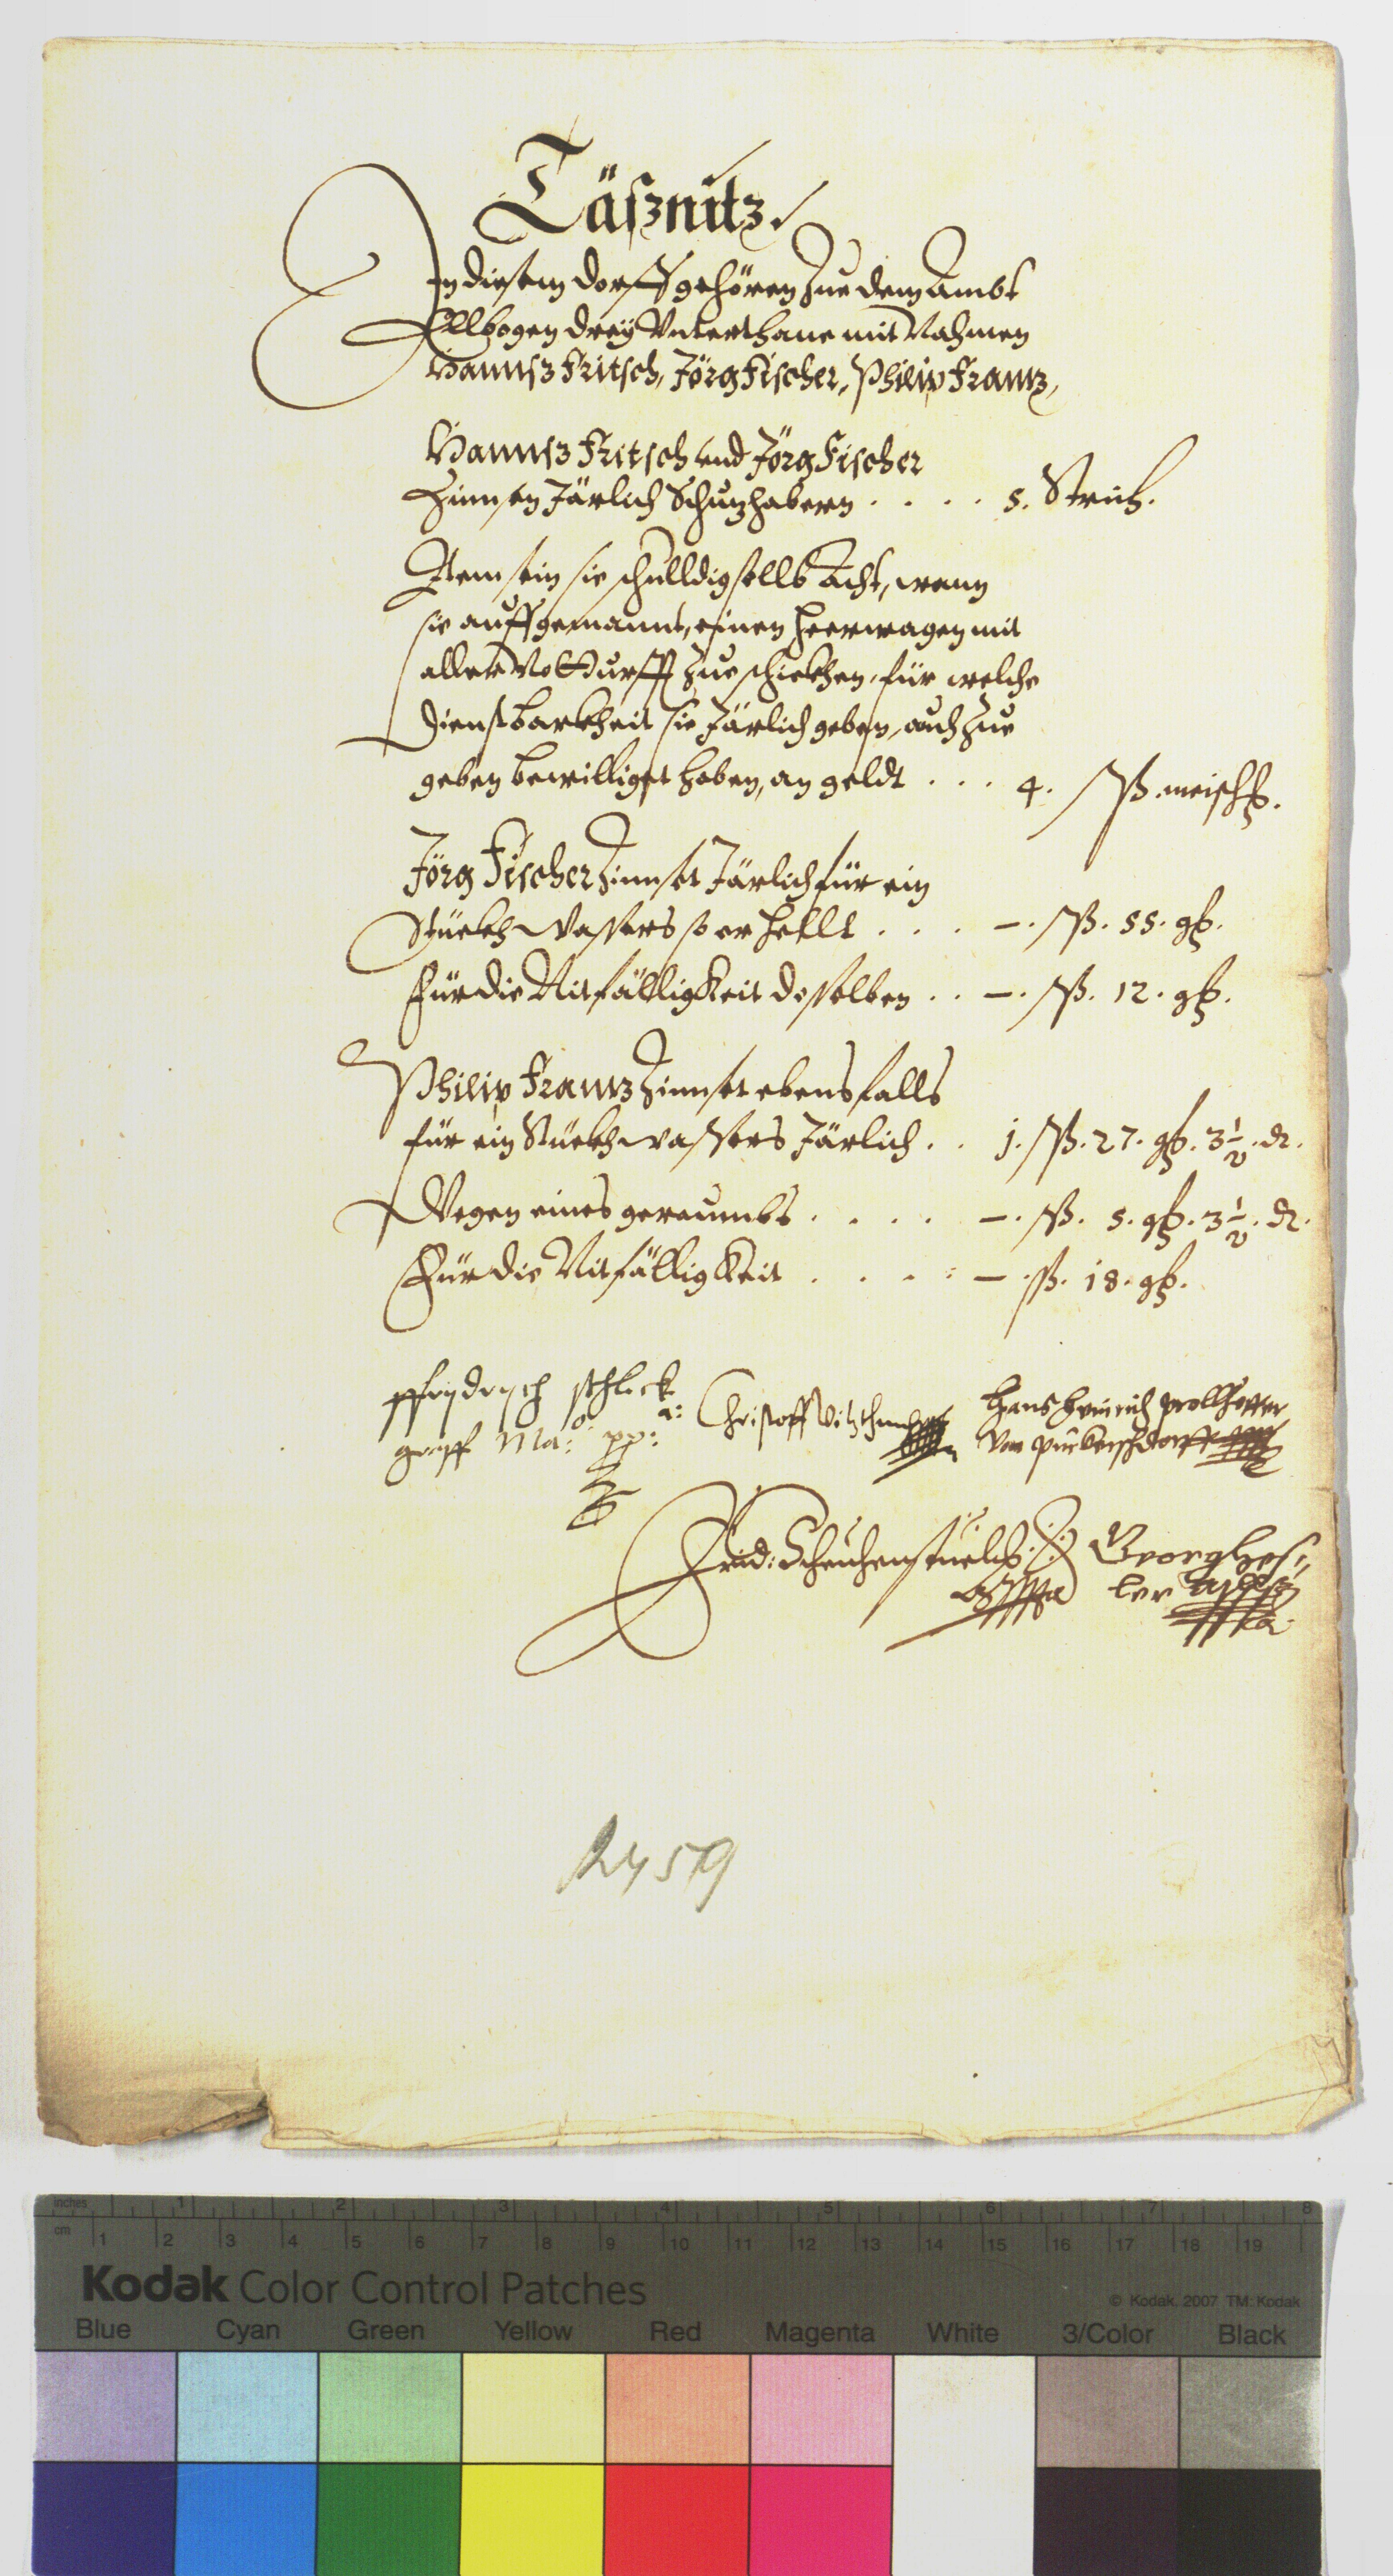 Täßnitz.
In diesem dorff gehören Zue dem Ambt
Ellbogen drey Vnterthane mit Nahmen
Hannß Fritsch, Jörg Fischer, Philip Frantz,
Hannß Fritsch vnd Jörg Fischer
Zinnsen Järlich Schutzhabern . . . . 5. Strich.
Item sein sie schulldig selb Acht, wann
sie auffgemannt, einen heerwagen mit
aller Notturfft Zue schickhen, für welche
dienstbarkheit sie Järlich geben, auch Zue
geben bewilliget haben, an geldt . . . 4. ßß. meisch.
Jörg Fischer Zinnset Järlich für ein
Stückh Wassers so er hellt . . . –. ßß. 55. gß.
Für die Nitfälligkeit desselben . . –. ßß. 12. gß.
Philip Frantz Zinnset ebensfalls
für ein Stückh wassers Järlich . . j. ßß. 27. gß. 3 1/2. d.
Wegen eines geraumbs . . . . –. ßß. 5. gß. 3 1/2. d.
Für die Nitfälligkeit . . . . –. ßß. 18. gß.
ffrydrych schlick Christoff Vitzthumb Hans Heinrich
graff Ma: pp: von
Frid: Georg Hes,,
ler
2459
inches 1 2 3 4 5 6 7 8
cm 1 2 3 4 5 6 7 8 9 10 11 12 13 14 15 16 17 18 19
Kodak Color Control Patches
© Kodak, 2007 TM: Kodak
Blue Cyan Green Yellow Red Magenta White 3/Color Black